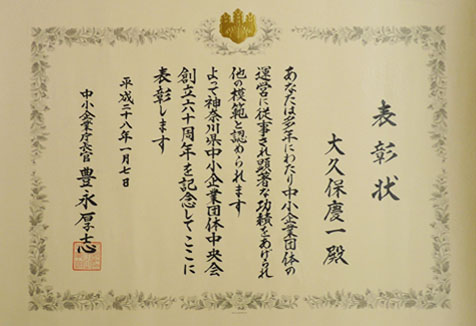 表彰状
大久保慶一殿
あなたは多年にわたり中小企業団体の
運営に従事され顕著な功績をあげられ
他の模範と認められます
よって神奈川県中小企業団体中央会
創立六十周年を記念してここに
表彰します
平成二十八年一月七日
中小企業庁長官 豊永厚志